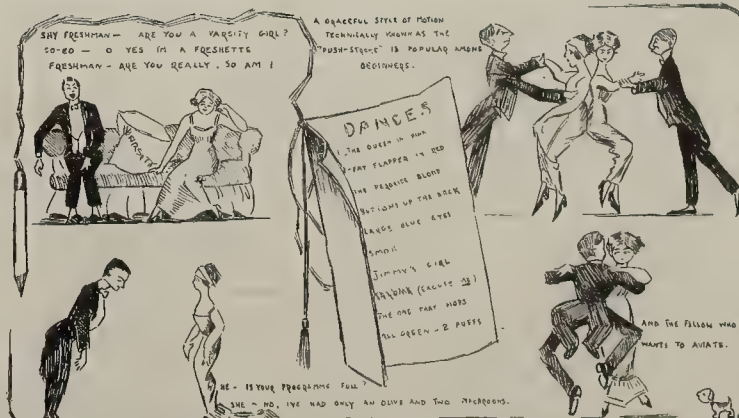 SHY FRESHMAN — ARE YOU A VARSITY GIRL?
CO-ED — O YES I'M A FRESHETTE
FRESHMAN - ARE YOU REALLY. SO AM I
A GRACEFUL STYLE OF MOTION
TECHNICALLY KNOWN AS THE
"PUSH-STROKE" IS POPULAR AMONG
BEGINNERS.
VARSITY
DANCES
1. THE QUEEN IN PINK
2. FAT FLAPPER IN RED
THE PEROXIDE BLOND
BUTTONS UP THE BACK
LARGE BLUE EYES
JIMMY'S GIRL
(EXCUSE ME)
THE ONE THAT HOPS
ALL GREEN - 2 PUFFS
AND THE FELLOW WHO
WANTS TO AVIATE.
HE - IS YOUR PROGRAMME FULL?
SHE - NO, I'VE HAD ONLY AN OLIVE AND TWO MACAROONS.